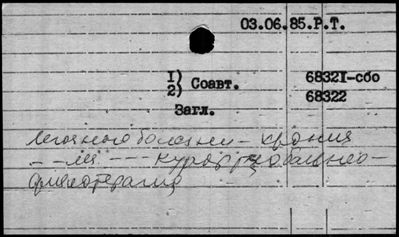 03.06.85.Р.Т.
1) Соавт. 68321-сбо
2) 68322
Загл.
легочного болезни - хрония
курорт
физиотерапия